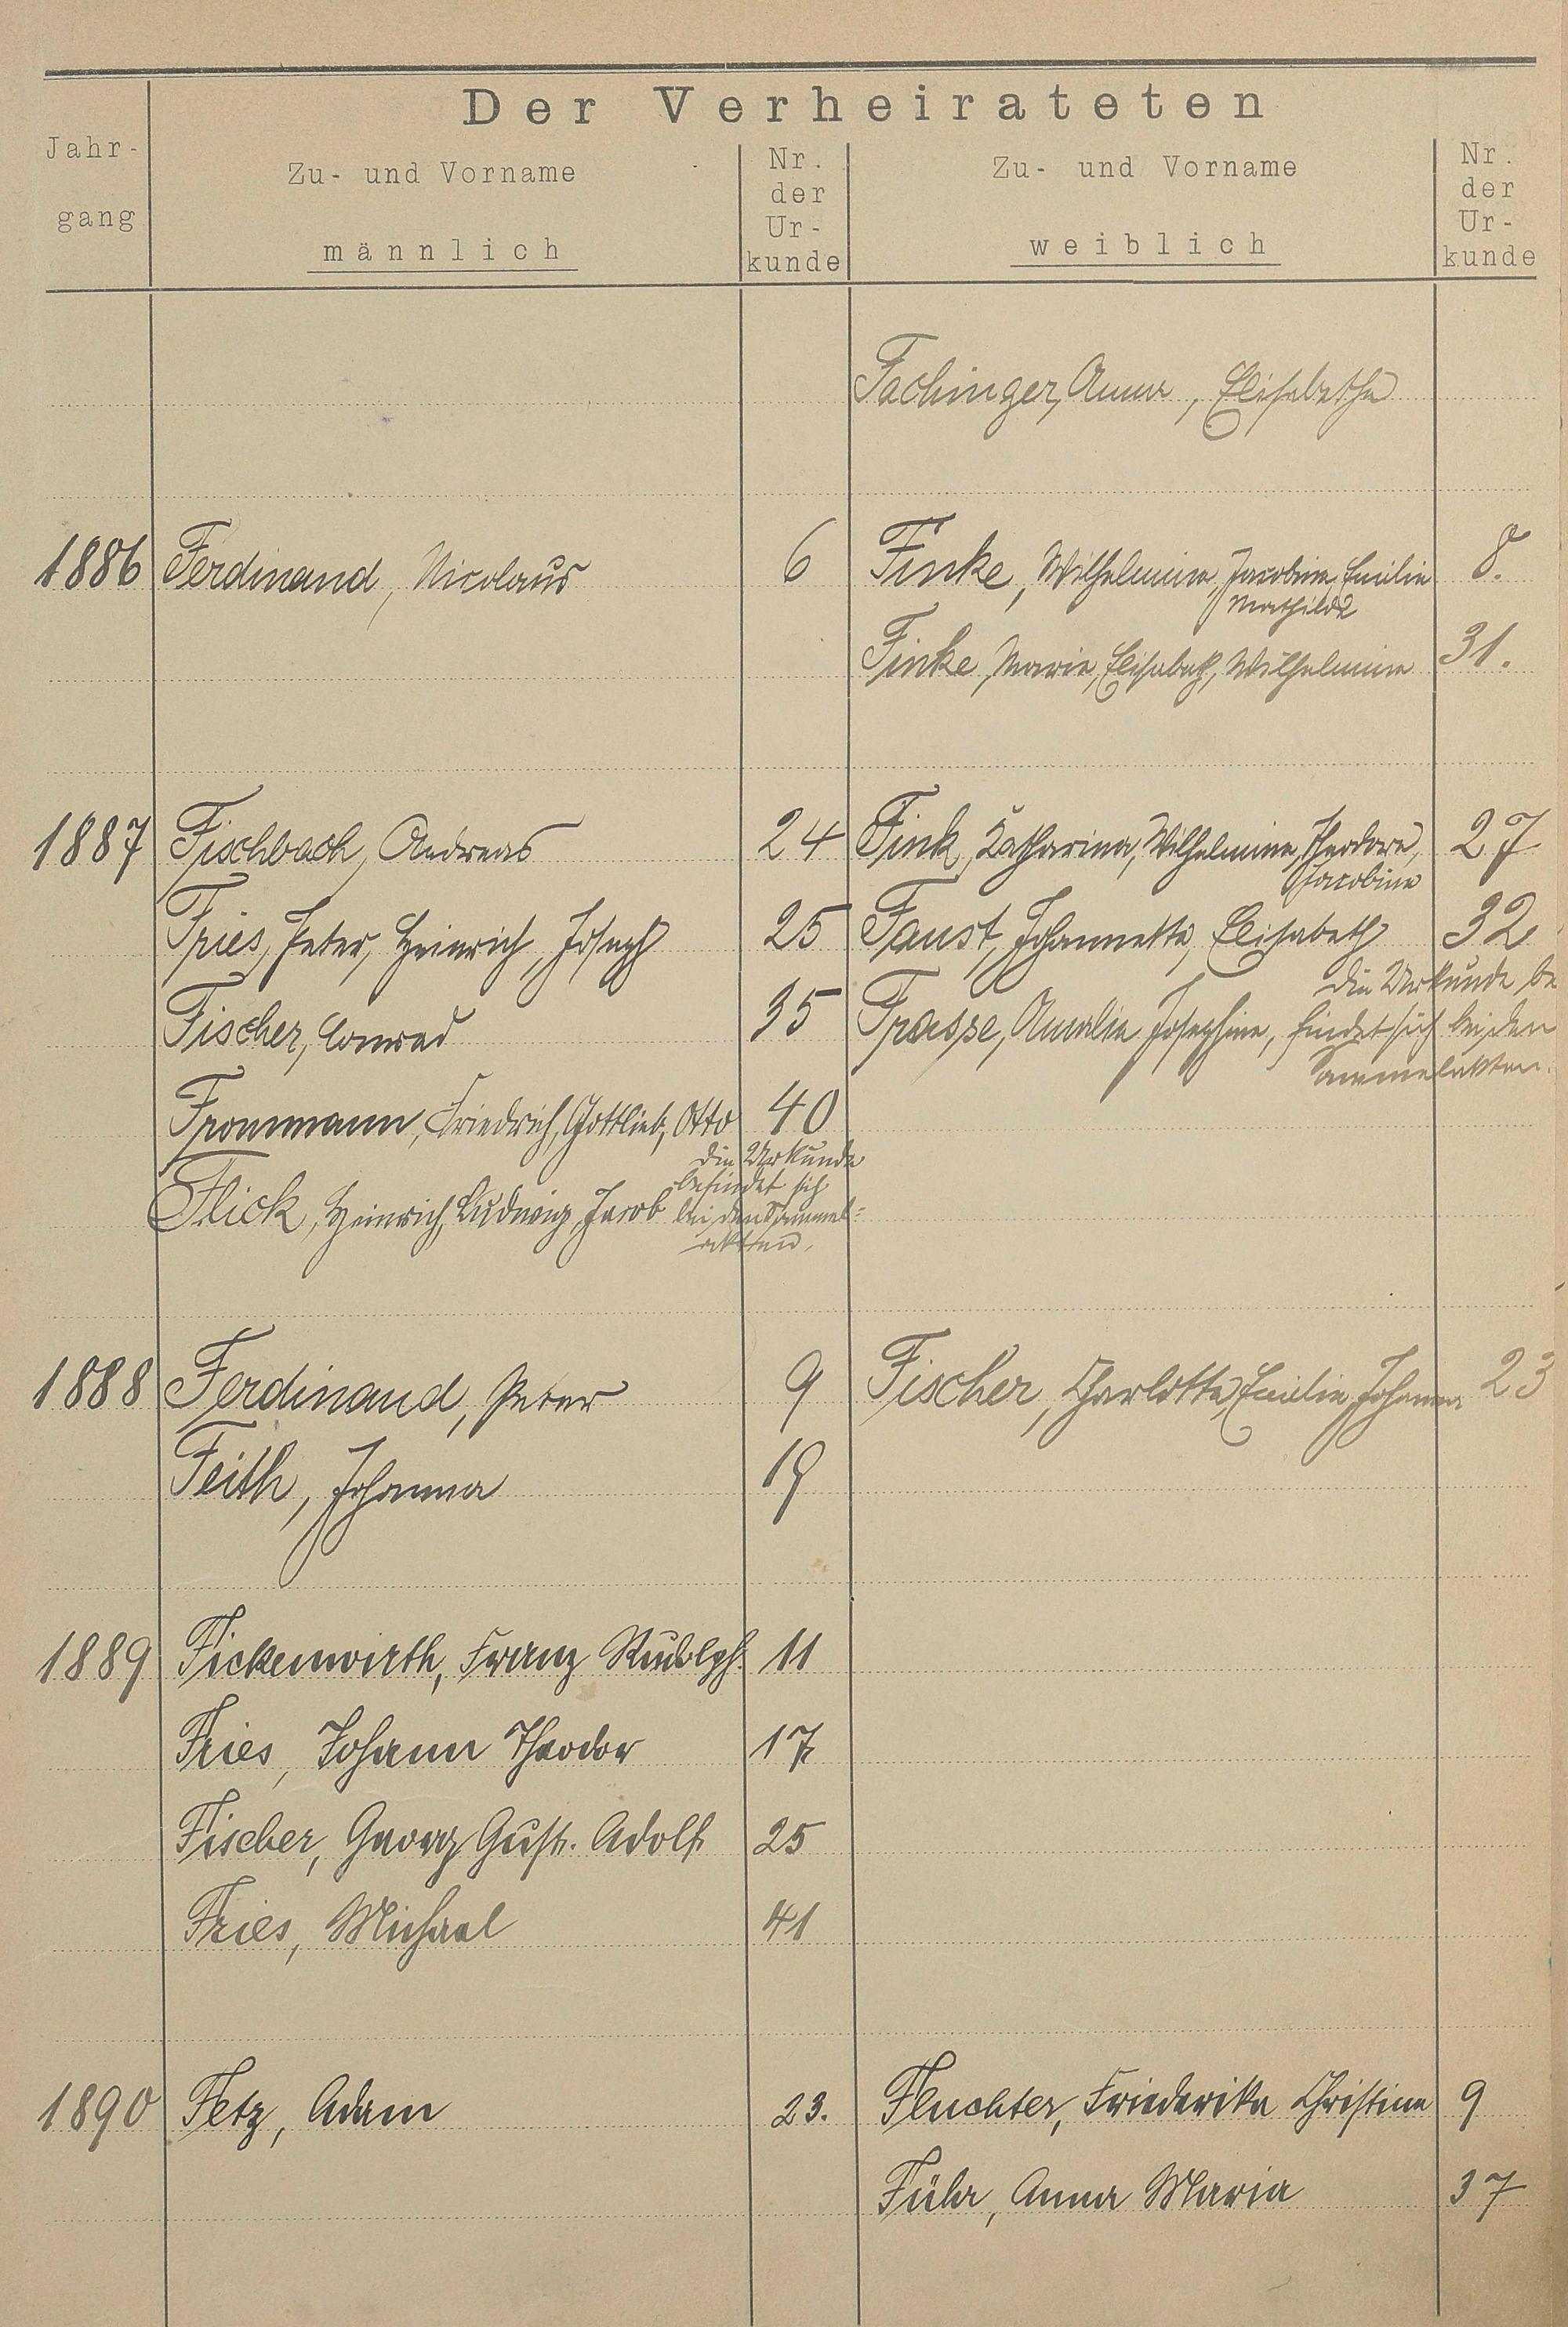 Der Verheirateten
Jahr-
gang
Zu- und Vorname
männlich
Nr.
der
Ur-
kunde
Zu- und Vorname
weiblich
Nr.
der
Ur-
kunde
Fachinger, Anna, Elisabetha
1886 Ferdinand, Nicolaus 6 Finke, Wilhelmine, Jacobine, Emilie 8.
Mathilde
Finke, Marie, Elisabeth, Wilhelmine 31.
1887 Fischbach, Andreas 24 Fink, Katharina, Wilhelmine, Theodore, 27
Jacobine
Fries, Peter, Heinrich, Joseph 25 Faust, Johannette, Elisabeth 32
Fischer, Conrad 35 Amalie Josephine, die Urkunde be
findet sich bei den
Sammelakten.
Frommann, Friedrich, Gottlieb, Otto 40
Flick, Heinrich, Ludwig, Jacob die Urkunde
befindet sich
bei den Sammel=
akten.
1888 Ferdinand, Peter 9 Fischer, Charlotte, Emilie, Johanna 23
Feith, Johanna 19
1889 Fickenwirth, Franz Rudolph. 11
Fries, Johann Theodor 17
Fischer, Georg Gust. Adolf 25
Fries, Michael 41
1890 Fetz, Adam 23. Feuchter, Friederike Christine 9
Führ, Anna Maria 37